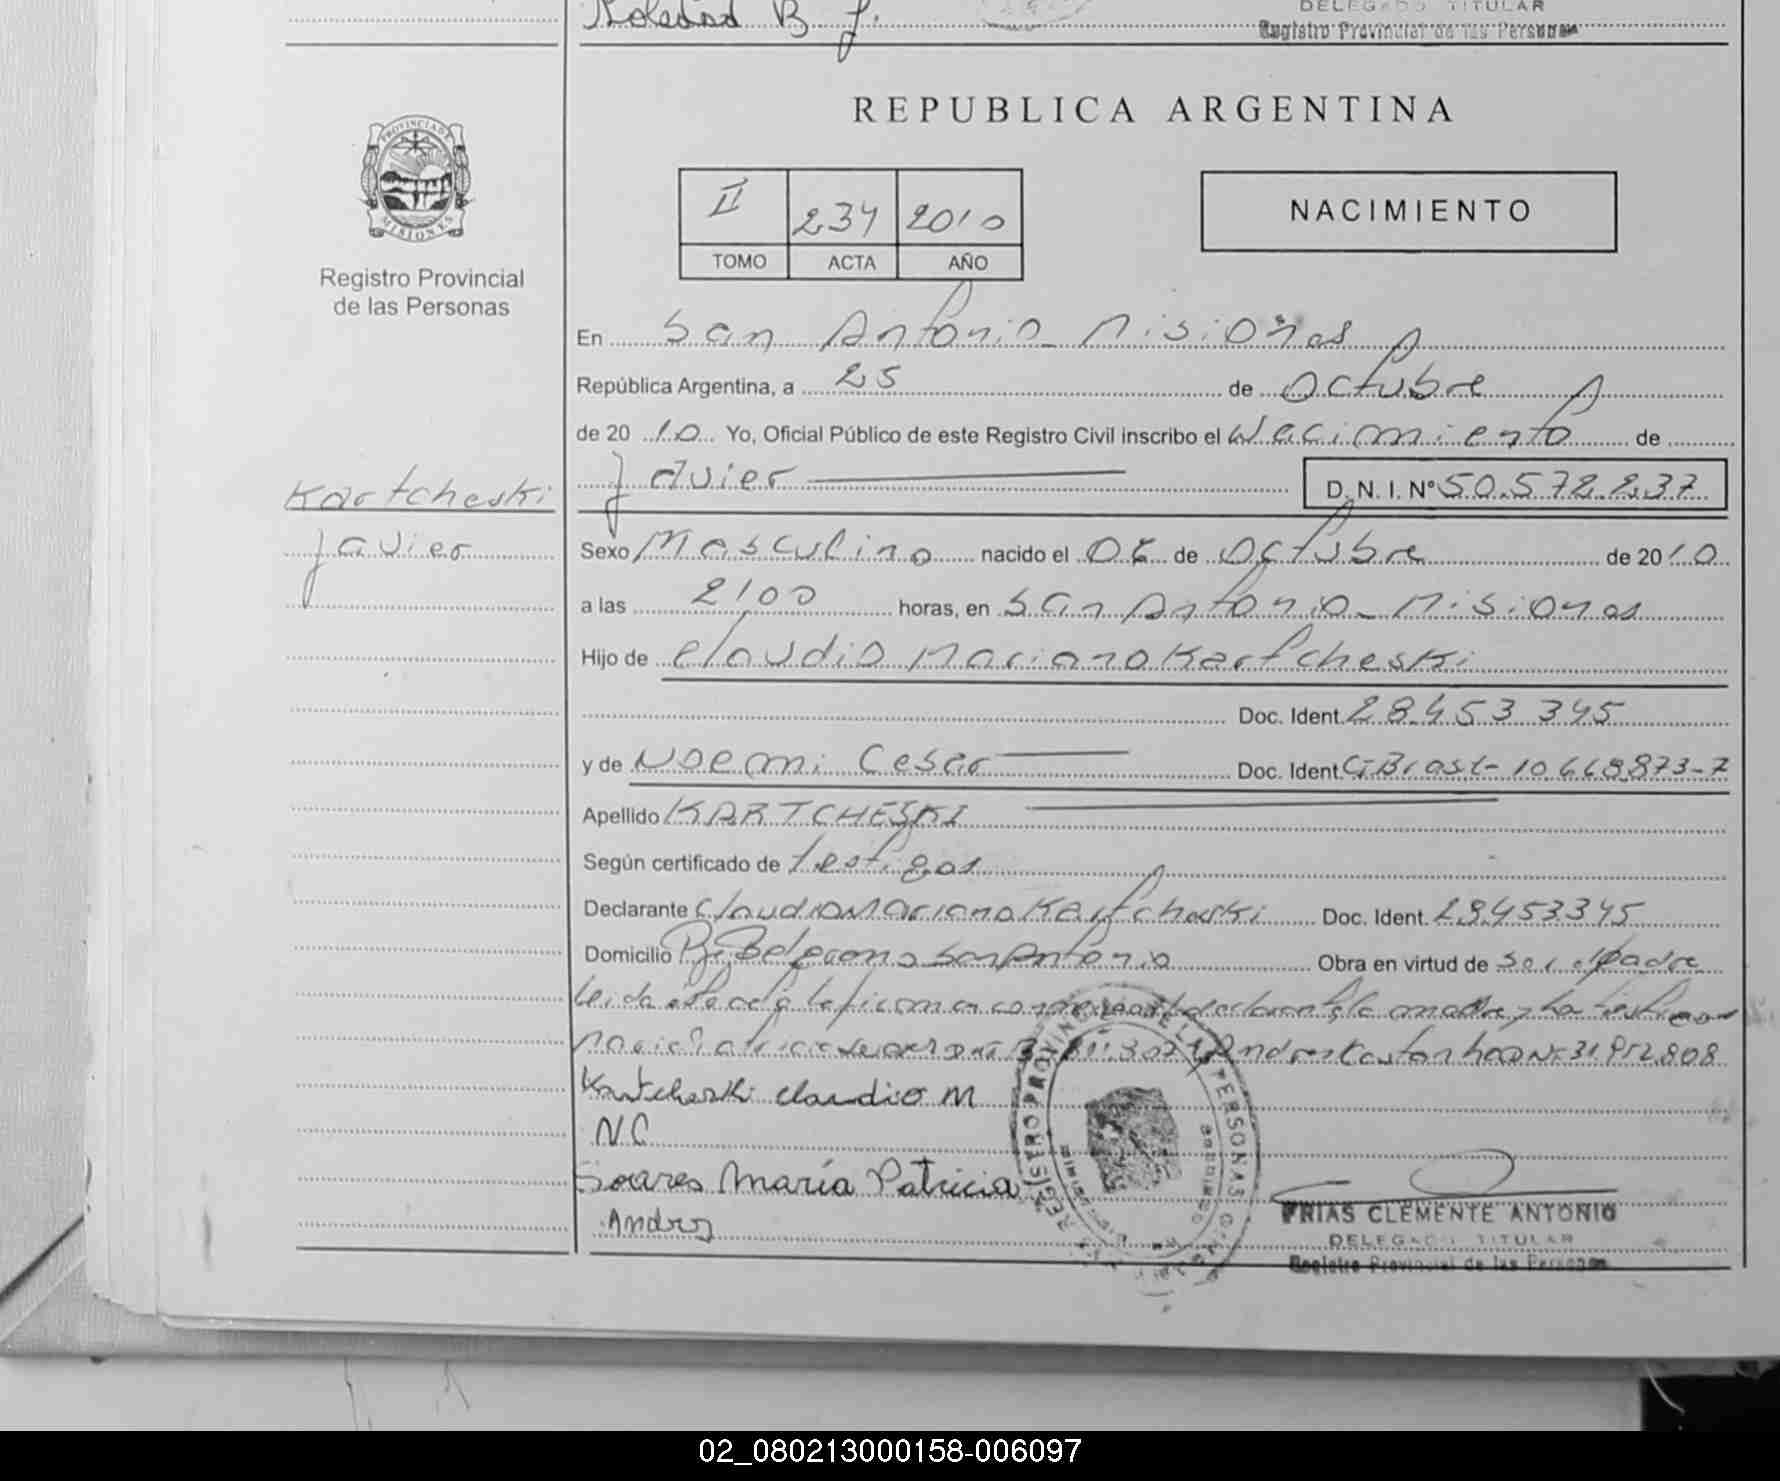 Soledad B J.
DELEGADO TITULAR
Registro Provincial de las Personas
PROVINCIA DE
MISIONES
Registro Provincial
de las Personas
REPUBLICA ARGENTINA
II 234 2010
TOMO ACTA AÑO
NACIMIENTO
En San Antonio - Misiones
República Argentina, a 25 de Octubre
de 2010 Yo, Oficial Público de este Registro Civil inscribo el Nacimiento de
Kartcheski
Javier
Javier
D. N. I. N° 50.572.237
Sexo Masculino nacido el 06 de Octubre de 2010
a las 2100 horas, en San Antonio - Misiones
Hijo de Claudio Mariano Kartcheski
Doc. Ident. 28453345
y de Noemi Cesar Doc. Ident. CI Brasil - 10668873-7
Apellido KARTCHESKI
Según certificado de testigos
Declarante Claudio Mariano Kartcheski Doc. Ident. 28453345
Domicilio Belgrano San Antonio Obra en virtud de ser el padre
Leida el acta la firman conmigo el declarante, la madre y los testigos
Maria Patricia Soares DNI Andres Castanho DNI 31.912.808
Kartcheski Claudio M
N.C
Soares María Patricia
Andres
REGISTRO PROVINCIAL DE LAS PERSONAS
FRIAS CLEMENTE ANTONIO
DELEGADO TITULAR
Registro Provincial de las Personas
02_080213000158-006097